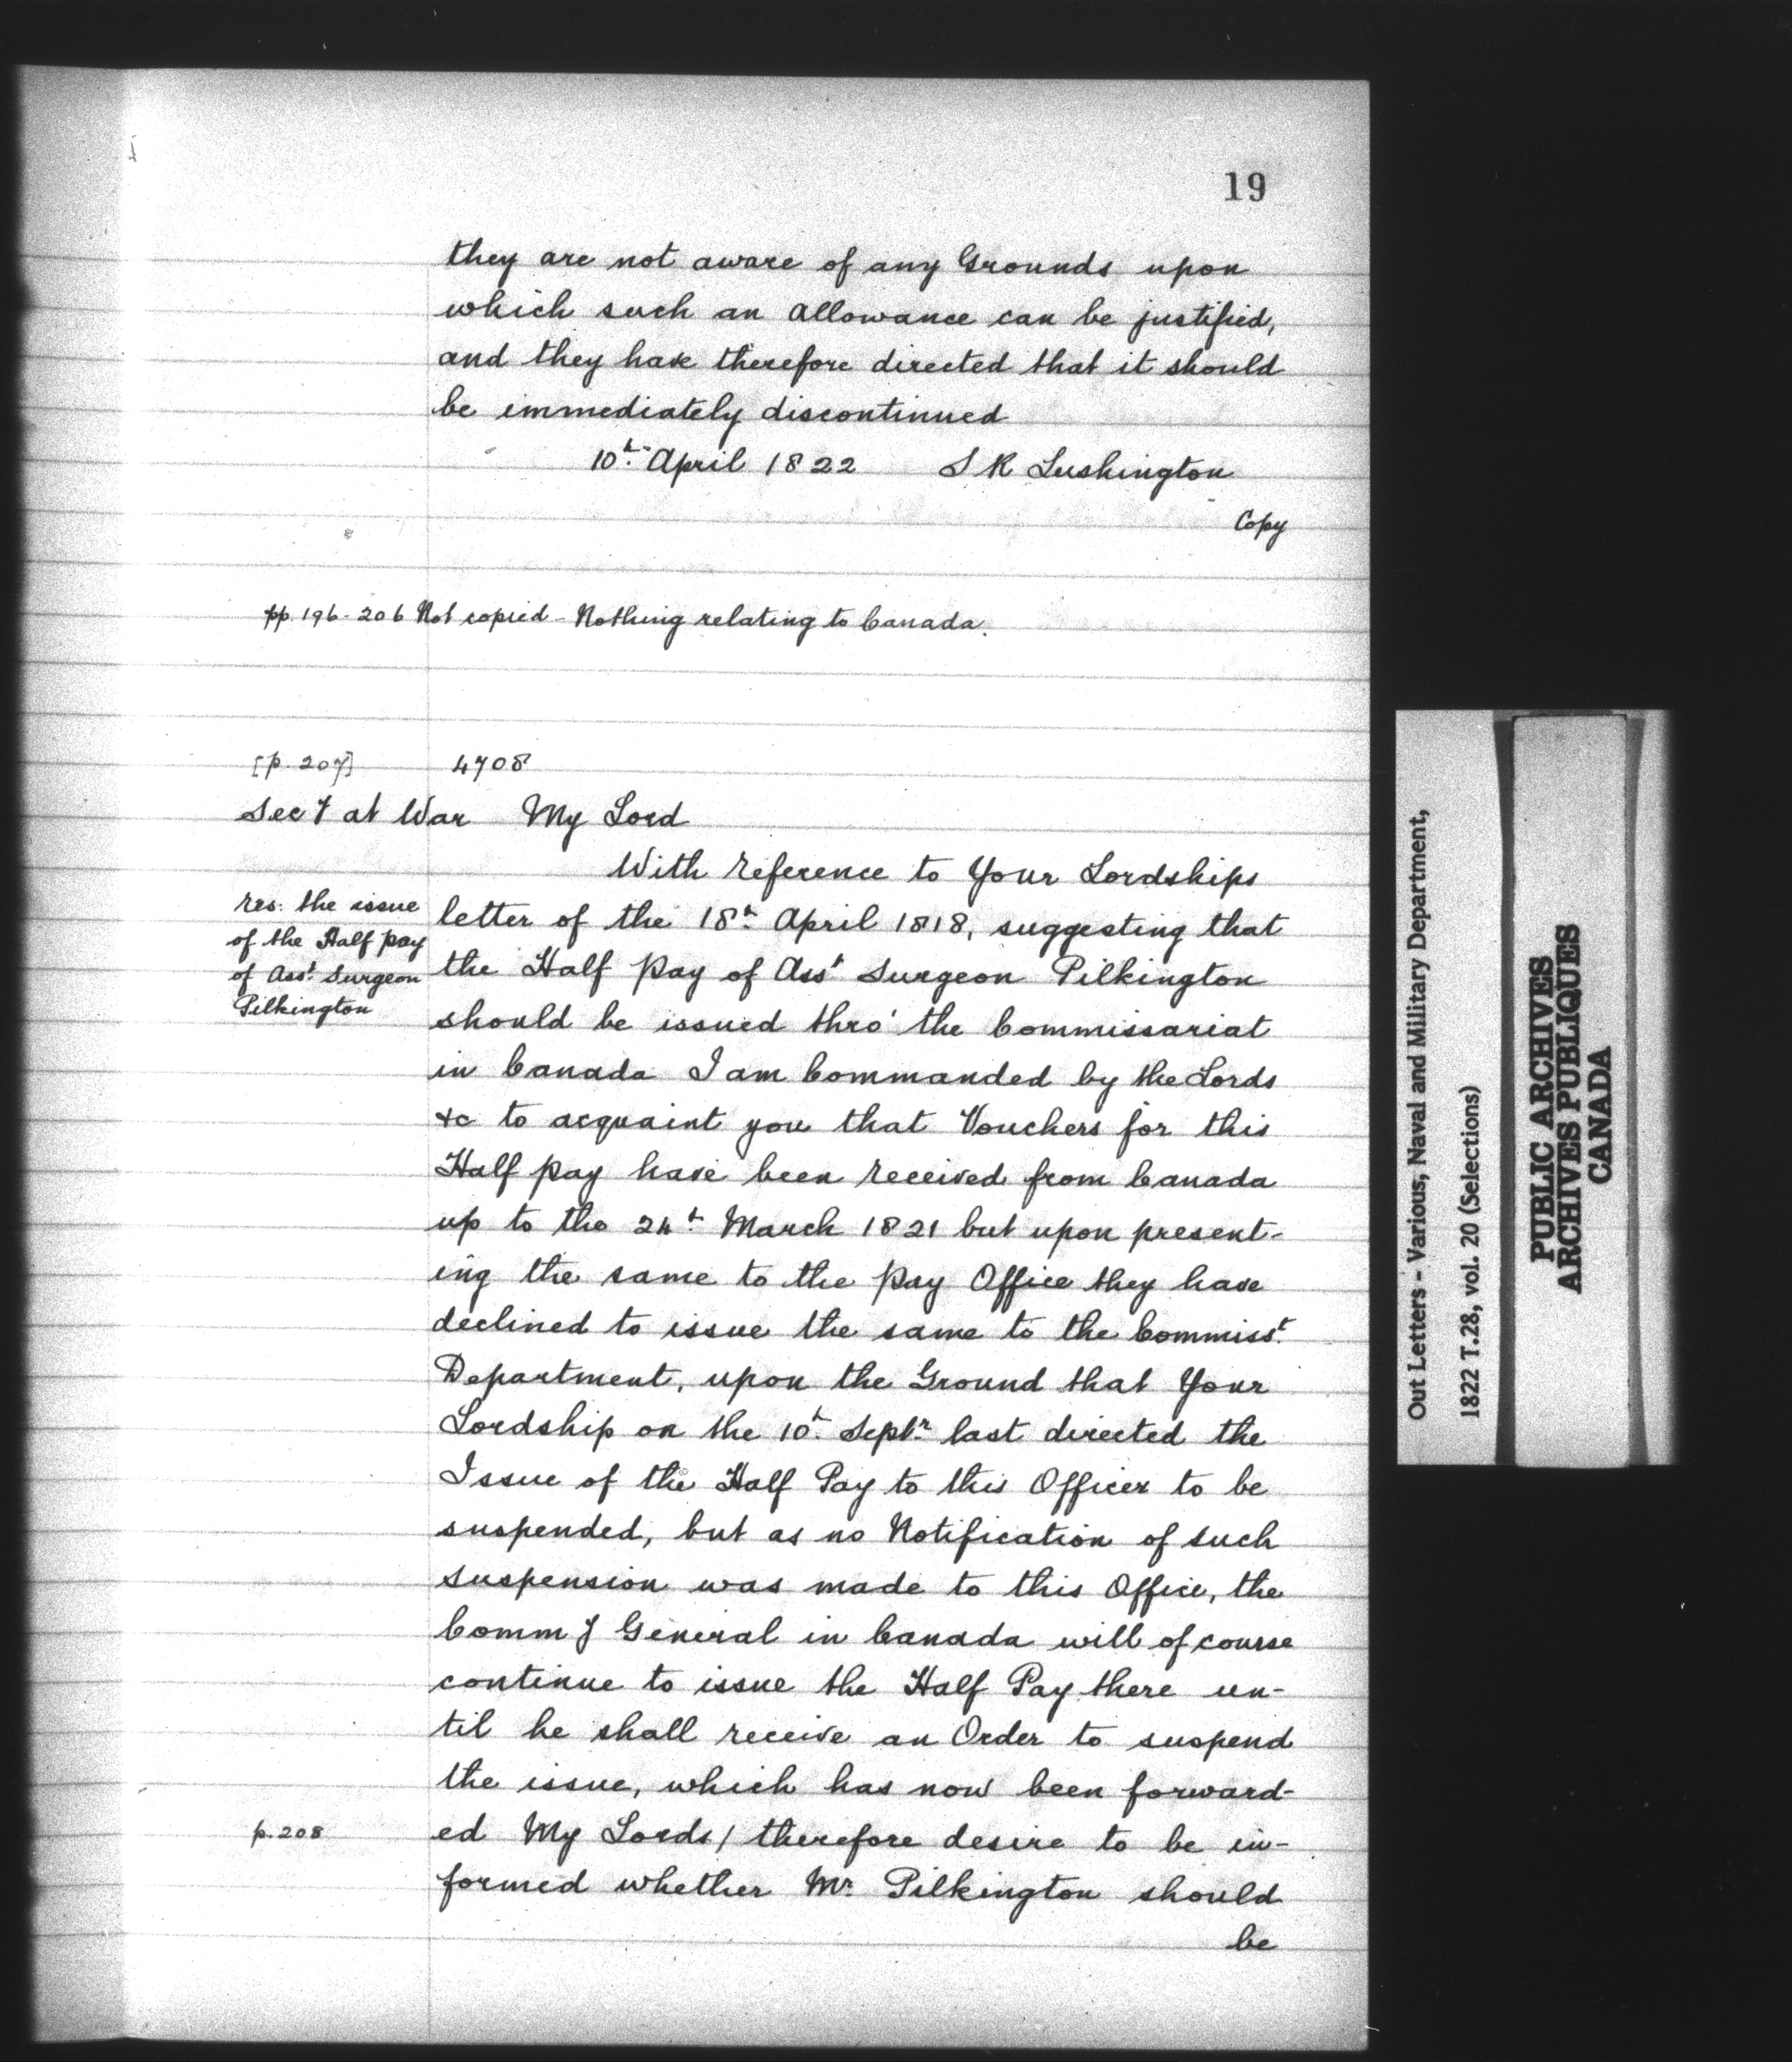 19
they are not aware of any Grounds upon
which such an allowance can be justified,
and they have therefore directed that it should
be immediately discontinued
10th April 1822 S R Lushington
Copy
pp. 196-206 Not copied - Nothing relating to Canada.
[p. 207] 4708
Secy at War My Lord
With reference to Your Lordships
res. the issue
of the Half pay
of Asst. Surgeon
Pilkington
letter of the 18th April 1818, suggesting that
the Half Pay of Asst Surgeon Pilkington
should be issued thro' the Commissariat
in Canada I am Commanded by the Lords
&c to acquaint you that Vouchers for this
Half pay have been received from Canada
up to the 24th March 1821 but upon present-
ing the same to the Pay Office they have
declined to issue the same to the Commisst.
Department, upon the Ground that Your
Lordship on the 10th Septr last directed the
Issue of the Half Pay to this Officer to be
suspended, but as no Notification of such
suspension was made to this Office, the
Commy General in Canada will of course
continue to issue the Half Pay there un-
til he shall receive an Order to suspend
the issue, which has now been forward-
p. 208
ed My Lords / therefore desire to be in-
formed whether Mr. Pilkington should
be
Out Letters - Various, Naval and Military Department,
1822 T.28, vol. 20 (Selections)
PUBLIC ARCHIVES
ARCHIVES PUBLIQUES
CANADA